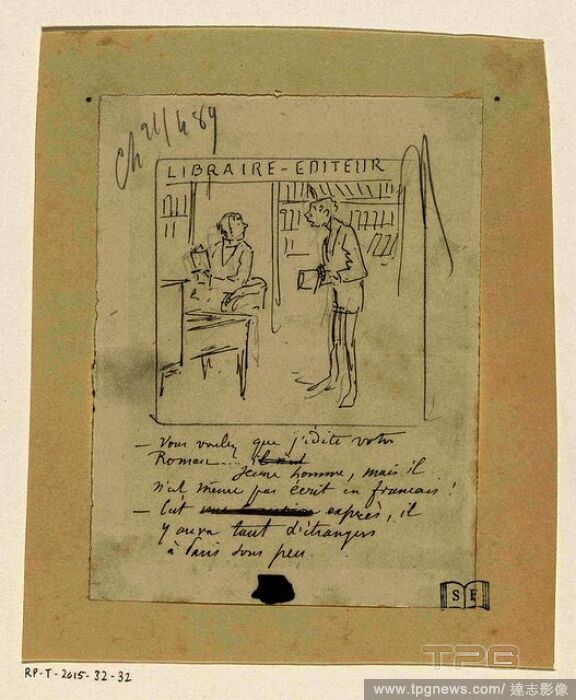 Ch 21/4 89
LIBRAIRE-EDITEUR
— Vous voulez que j'édite votre
Roman....
Jeune homme, mais il
n'est même pas écrit en francais !
— C'est exprès, il
y aura tant d'étrangers
à Paris sous peu.
S E
RP-T-2015-32-32
TPG
www.tpgnews.com/ 達志影像